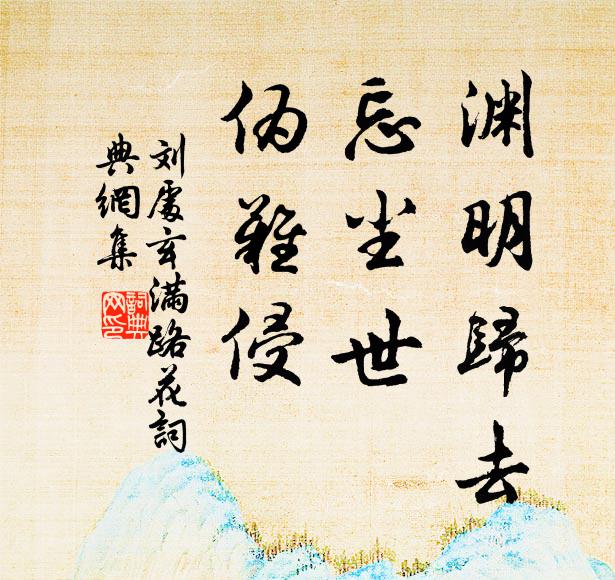 渊明歸去
忘尘世
伪難侵
刘處玄满路花詞
典網集
詞典
网印